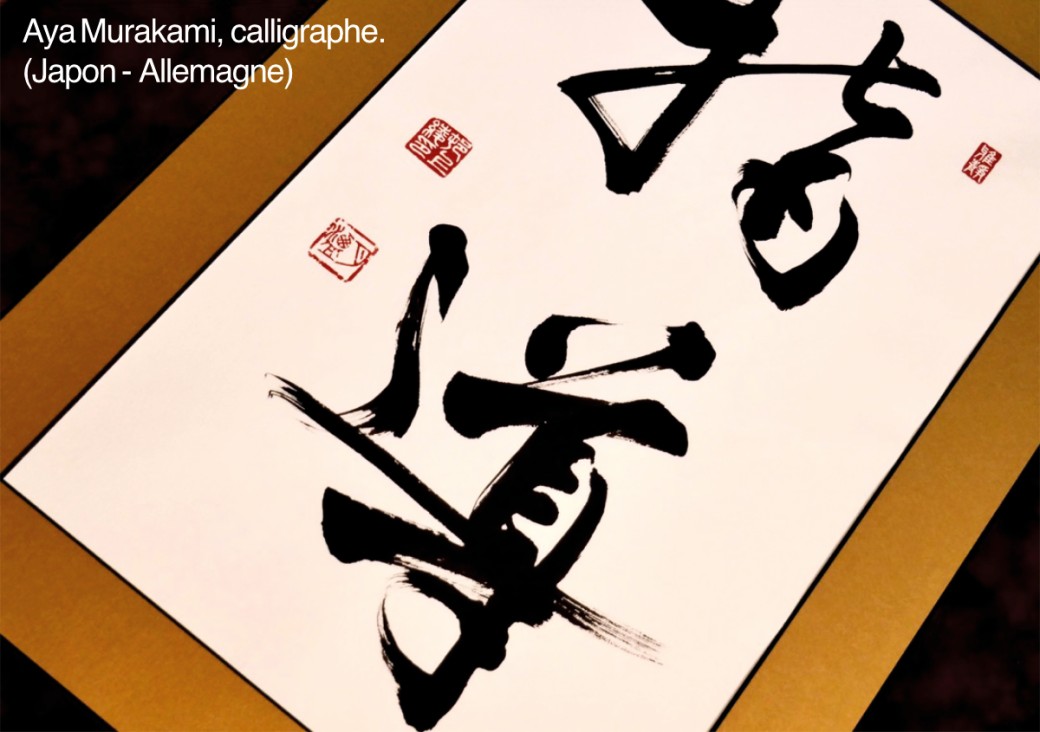 Aya Murakami, calligraphe.
(Japon - Allemagne)
指
導